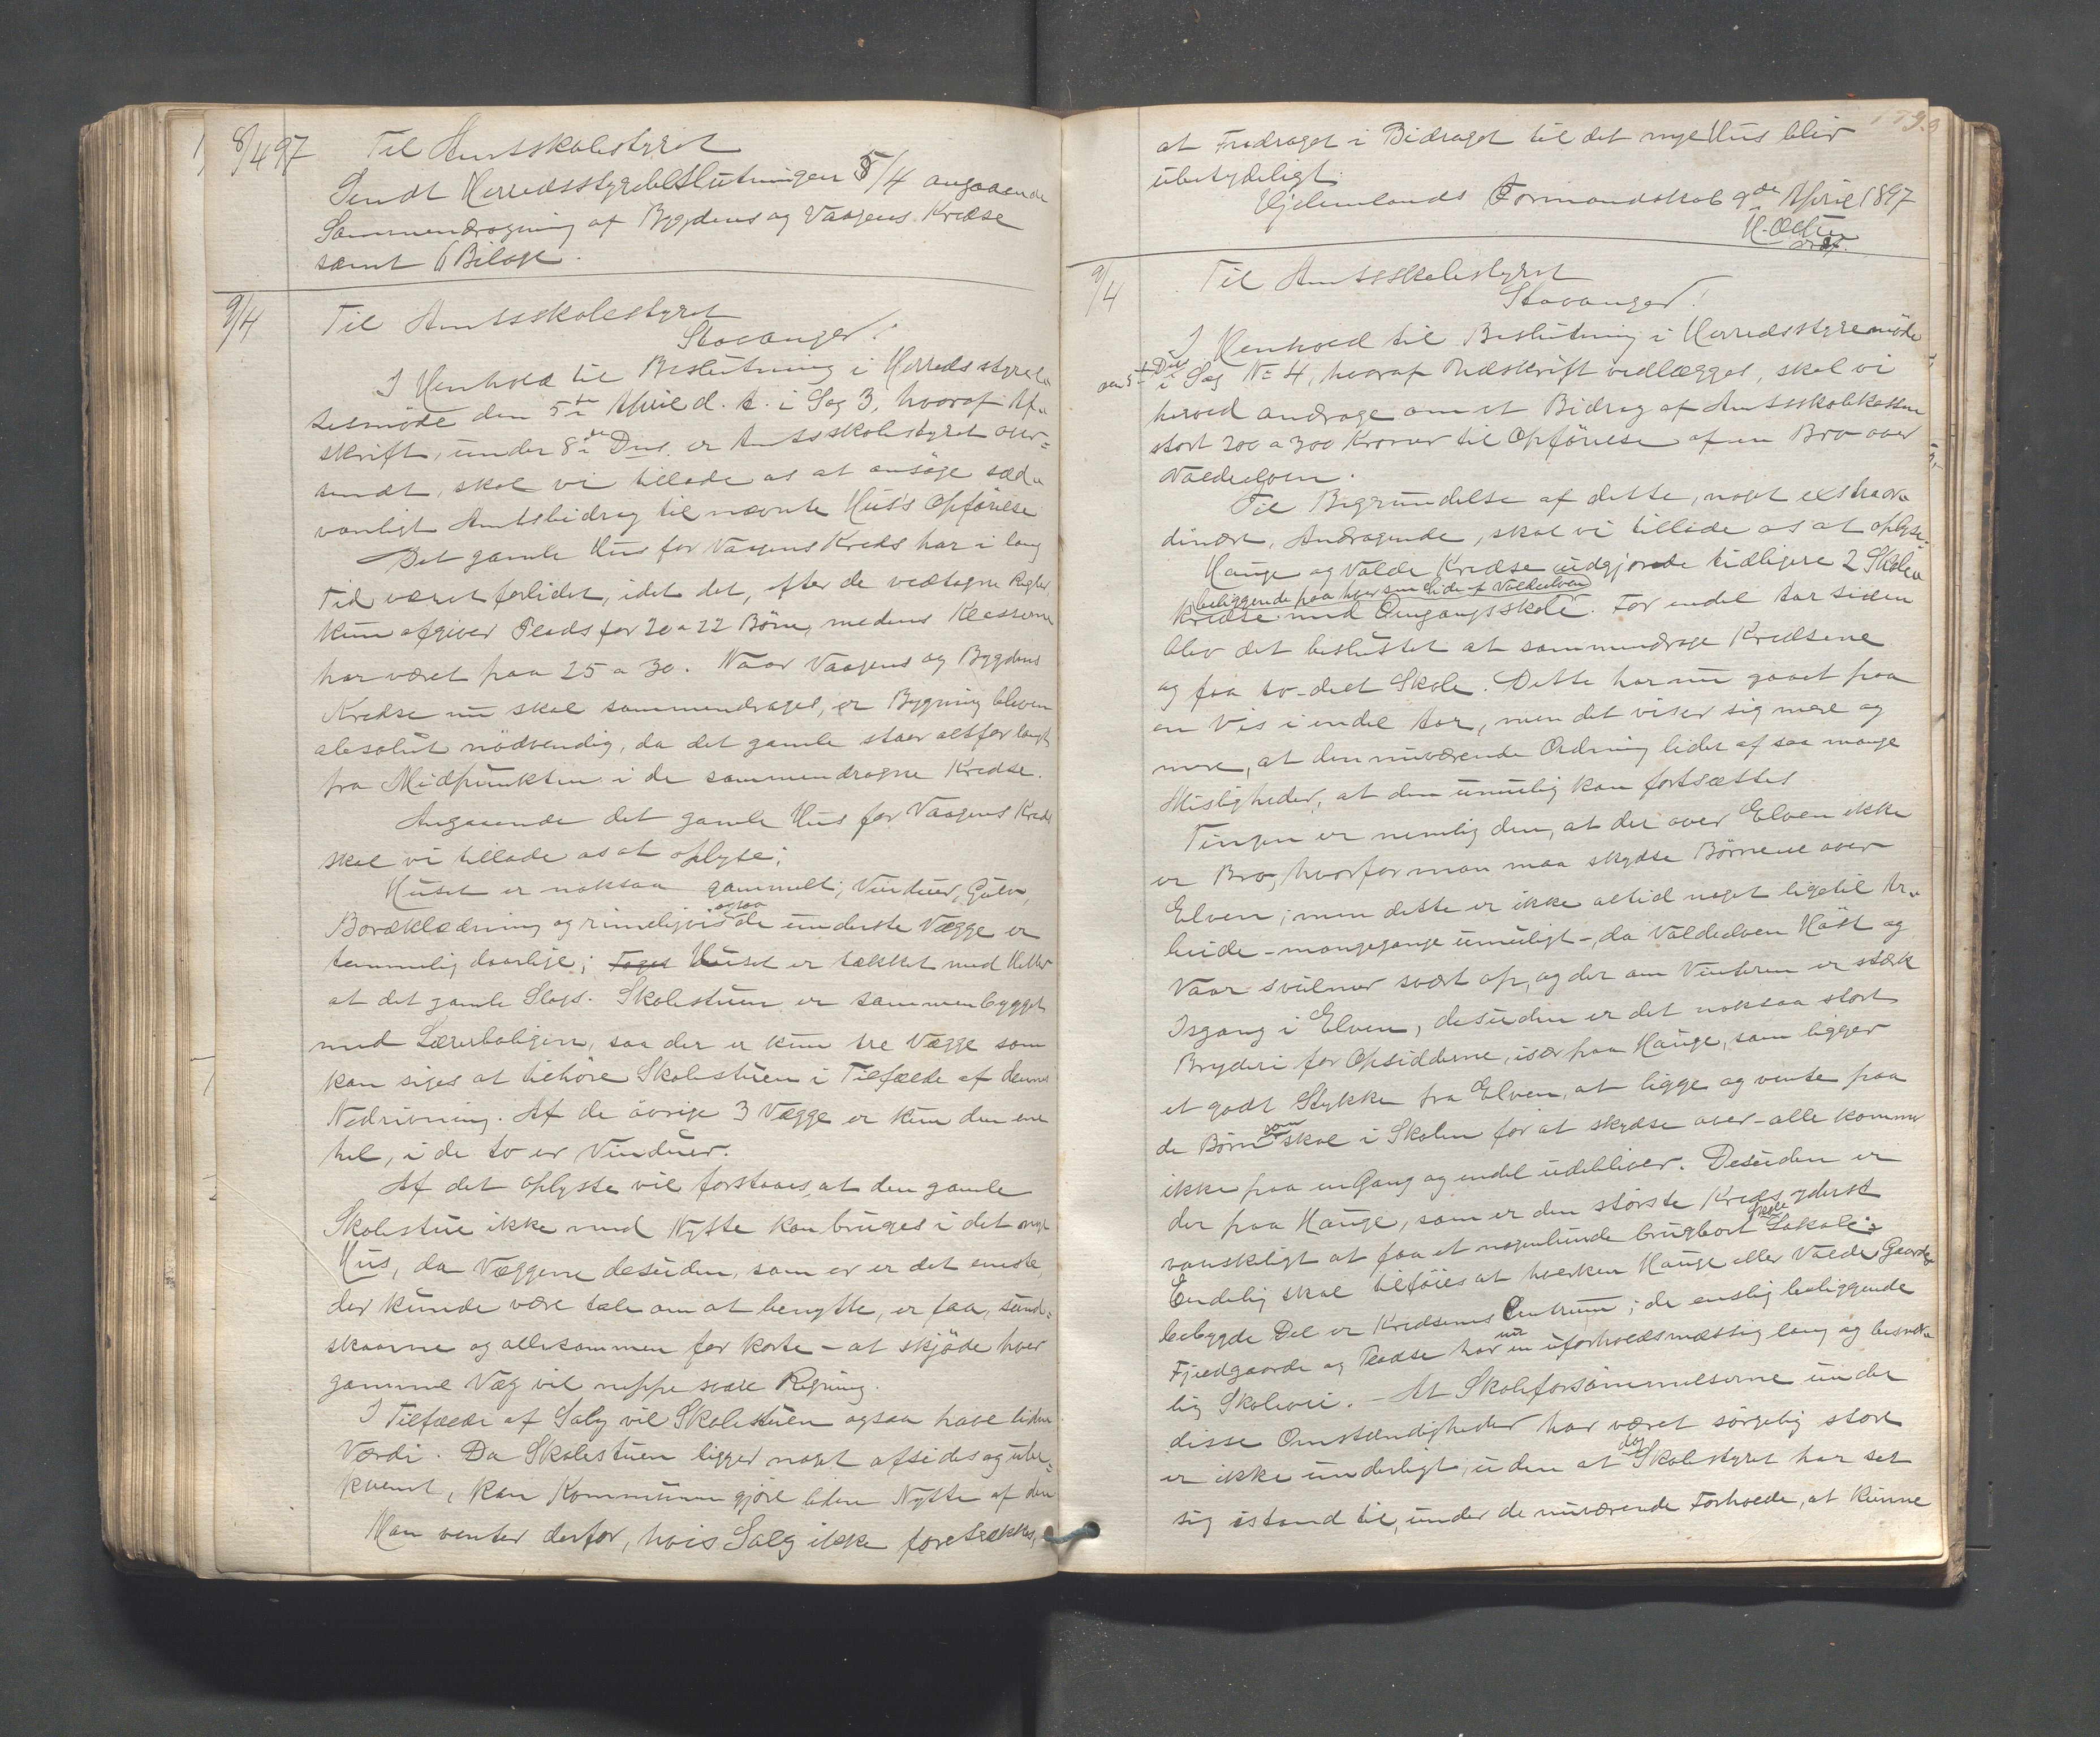 8/4 97 Til Amtsskolestyret
Sendt Herredsstyrebeslutningen 5/4 angaaende
Sammendragning af Bygdens og Vaagens Kredse
samt 6 Bilage.
9/4 Til Amtsskolestyret
Stavanger!
I Henhold til Beslutning i Herredsstyrel-
sesmöde den 5te April d. A. i Sag 3, hvoraf Af-
skrift, under 8de Ds. er Amtsskolestyret over-
sendt, skal vi tillade os at ansöge sæd-
vanligt Amtsbidrag til nævnte Hus's Opförelse
Det gamle Hus for Vaagens Kreds har i lang
Tid været forlidet, idet det, efter de vedtagne Regler
kun afgiver Plads for 20 a 22 Börn, medens Klasserne
har været paa 25 a 30. Naar Vaagens og Bygdens
Kredse nu skal sammendrages, er Bygning bleven
absolut nödvendig, da det gamle staar altfor langt
fra Midpunkten i de sammendragne Kredse.
Angaaende det gamle Hus for Vaagens Kreds
skal vi tillade os at oplyse:
Huset er noksaa gammelt; Vinduer, Gulv,
Bordklædning og rimeligvis ogsaa de underste Vægge er
temmelig daarlige; Taget Huset er tækket med Heller
at det gamle Slags. Skolestuen er sammenbygget
med Lærerboligen, saa der er kun tre Vægge som
kan siges at tilhöre Skolestuen i Tilfælde af dennes
Nedrivning. Af de övrige 3 Vægge er kun den ene
hel, i de to er Vinduer.
Af det oplyste vil forstaaes, at den gamle
Skolestue ikke med Nytte kan bruges i det nye
Hus, da Væggene desuden, som er er det eneste,
der kunde være tale om at benytte, er faa, sund-
skaarne og allesammen for korte - at skjöde hver
gammel Væg vil neppe svare Regning.
I Tilfælde af Salg vil Skolestuen ogsaa have liden
Værdi. Da Skolestuen ligger noget afsides og ube-
kvemt, kan Kommunen gjöre liden Nytte af den
Man venter derfor, hvis Salg ikke foretrækkes,
at Fradraget i Bidraget til det nye Hus bliver
ubetydeligt.
Hjelmelands Formandskab 9de April 1897
ordf.
9/4 Til Amtsskolestyret
Stavanger!
I Henhold til Beslutning i Herredsstyremöde
den 5te Ds i Sag No 4, hvoraf Udskrift vedlægges, skal vi
herved andrage om et Bidrag af Amtsskolekassen
stort 200 a 300 Kroner til Opförelse af en Bro over
Valdeelven.
Til Begrundelse af dette, noget extraor-
dinært, Andragende, skal vi tillade os at oplyse.
Hauge og Valde Kredse udgjorde tidligere 2 Skole-
beliggende paa hver sin Side af Valdeelven
kredse med Omgangsskole. For endel Aar siden
blev det besluttet at sammendrage Kredsene
og faa to-delt Skole. Dette har nu gaaet paa
en Vis i endel Aar, men det viser sig mere og
mere, at den nuværende Ordning lider af saa mange
Misligheder, at den umulig kan fortsættes
Tingen er nemlig den, at der over Elven ikke
er Bro, hvorfor man maa skydse Börnene over
Elven; men dette er ikke altid noget ligetil Ar-
beide - mangegange umuligt -, da Valdeelven Höst og
Vaar svulmer svært op, og der om Vinteren er stærk
Isgang i Elven, desuden er det noksaa stort
Bryderi for Opsidderne, især paa Hauge, som ligger
et godt Stykke fra Elven, at ligge og vente paa
de Börn som skal i Skolen for at skydse over - alle kommer
ikke paa en Gang og endel udebliver. Desuden er
der paa Hauge, som er den störste Kreds yderst
vanskeligt at faa et nogenlunde brugbart Skole Lokale.
Endelig skal tilföies at hverken Hauge eller Valde Gaardes
bebygde Del er Kredsens Centrum; de enslig beliggende
Fjeldgaarde og Pladse har nu en uforholdsmæssig lang og besvær-
lig Skolevei. - At Skoleforsömmelserne under
disse Omstændigheder har været sörgelig store
er ikke underligt, uden at dog Skolestyret har set
sig istand til, under de nuværende Forholde, at kunne